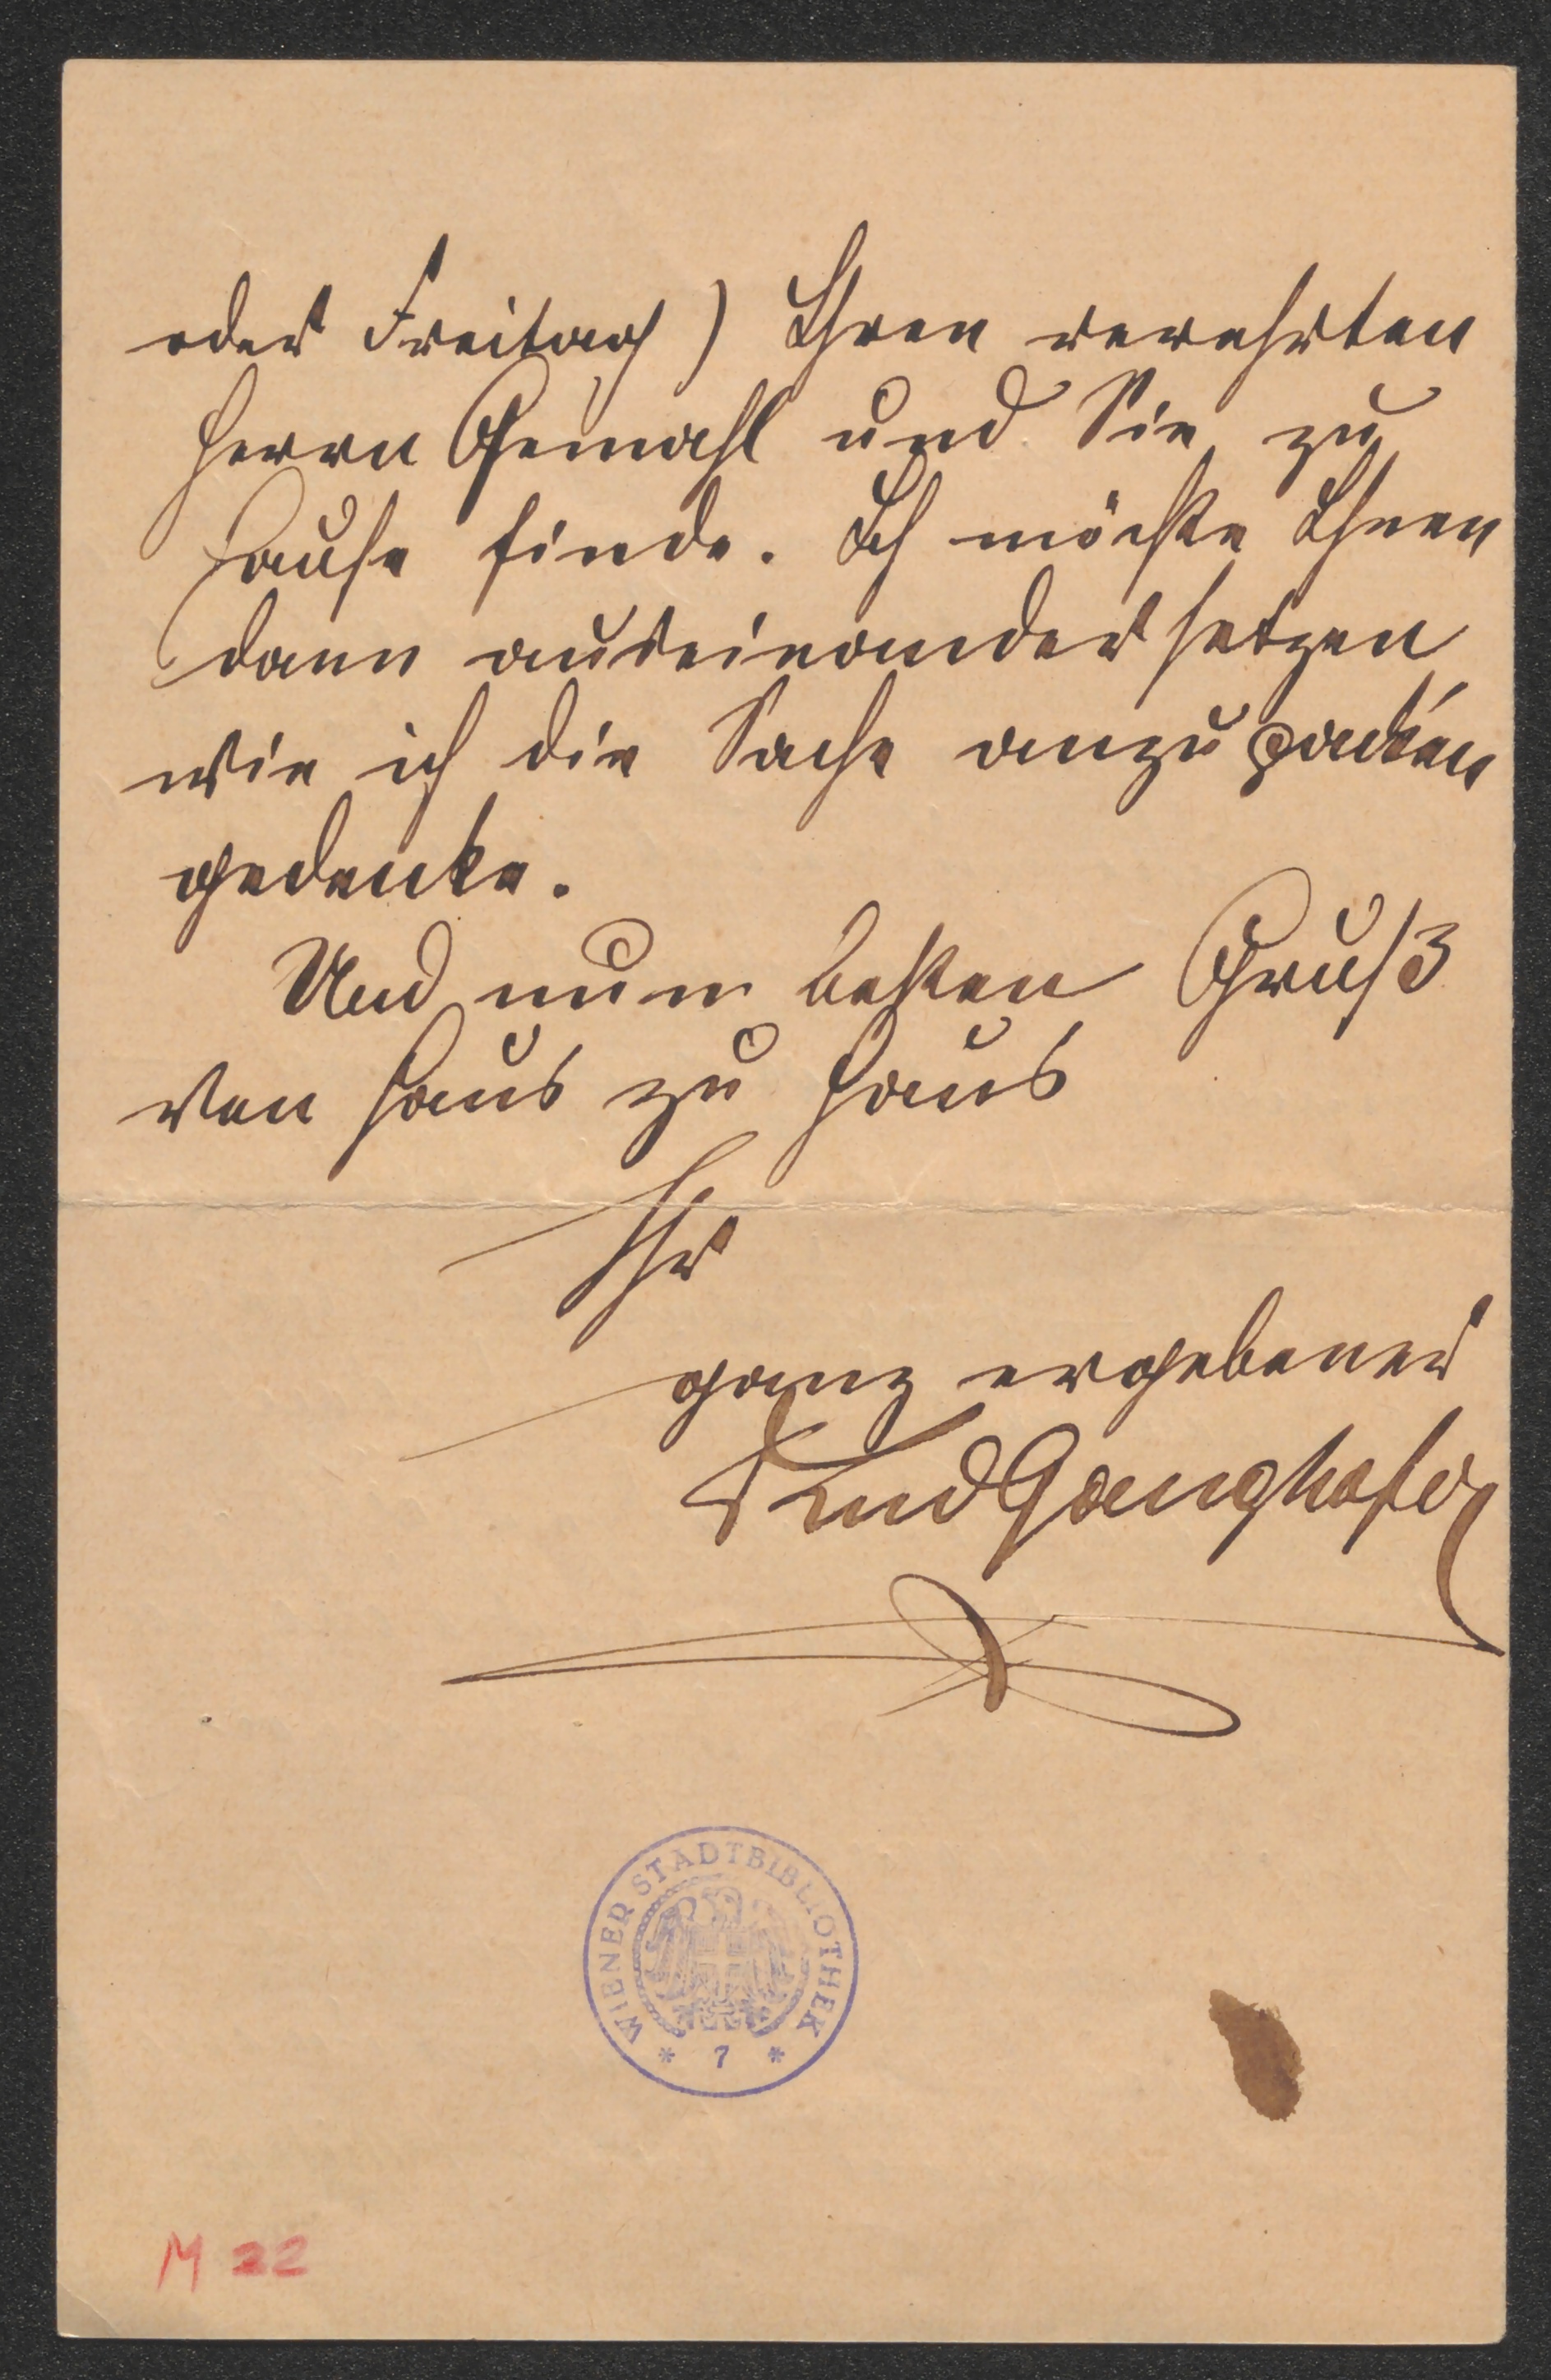 oder Freitag) Ihren verehrten
Herrn Gemahl und Sie zu
Hause finde. Ich möchte Ihnen
dann auseinander setzen
wie ich die Sache anzupacken
gedenke.
Und nun besten Gruß
von Haus zu Haus
Ihr
ganz ergebener
LudGanghofer
WIENER STADTBIBLIOTHEK
* 7 *
M 22